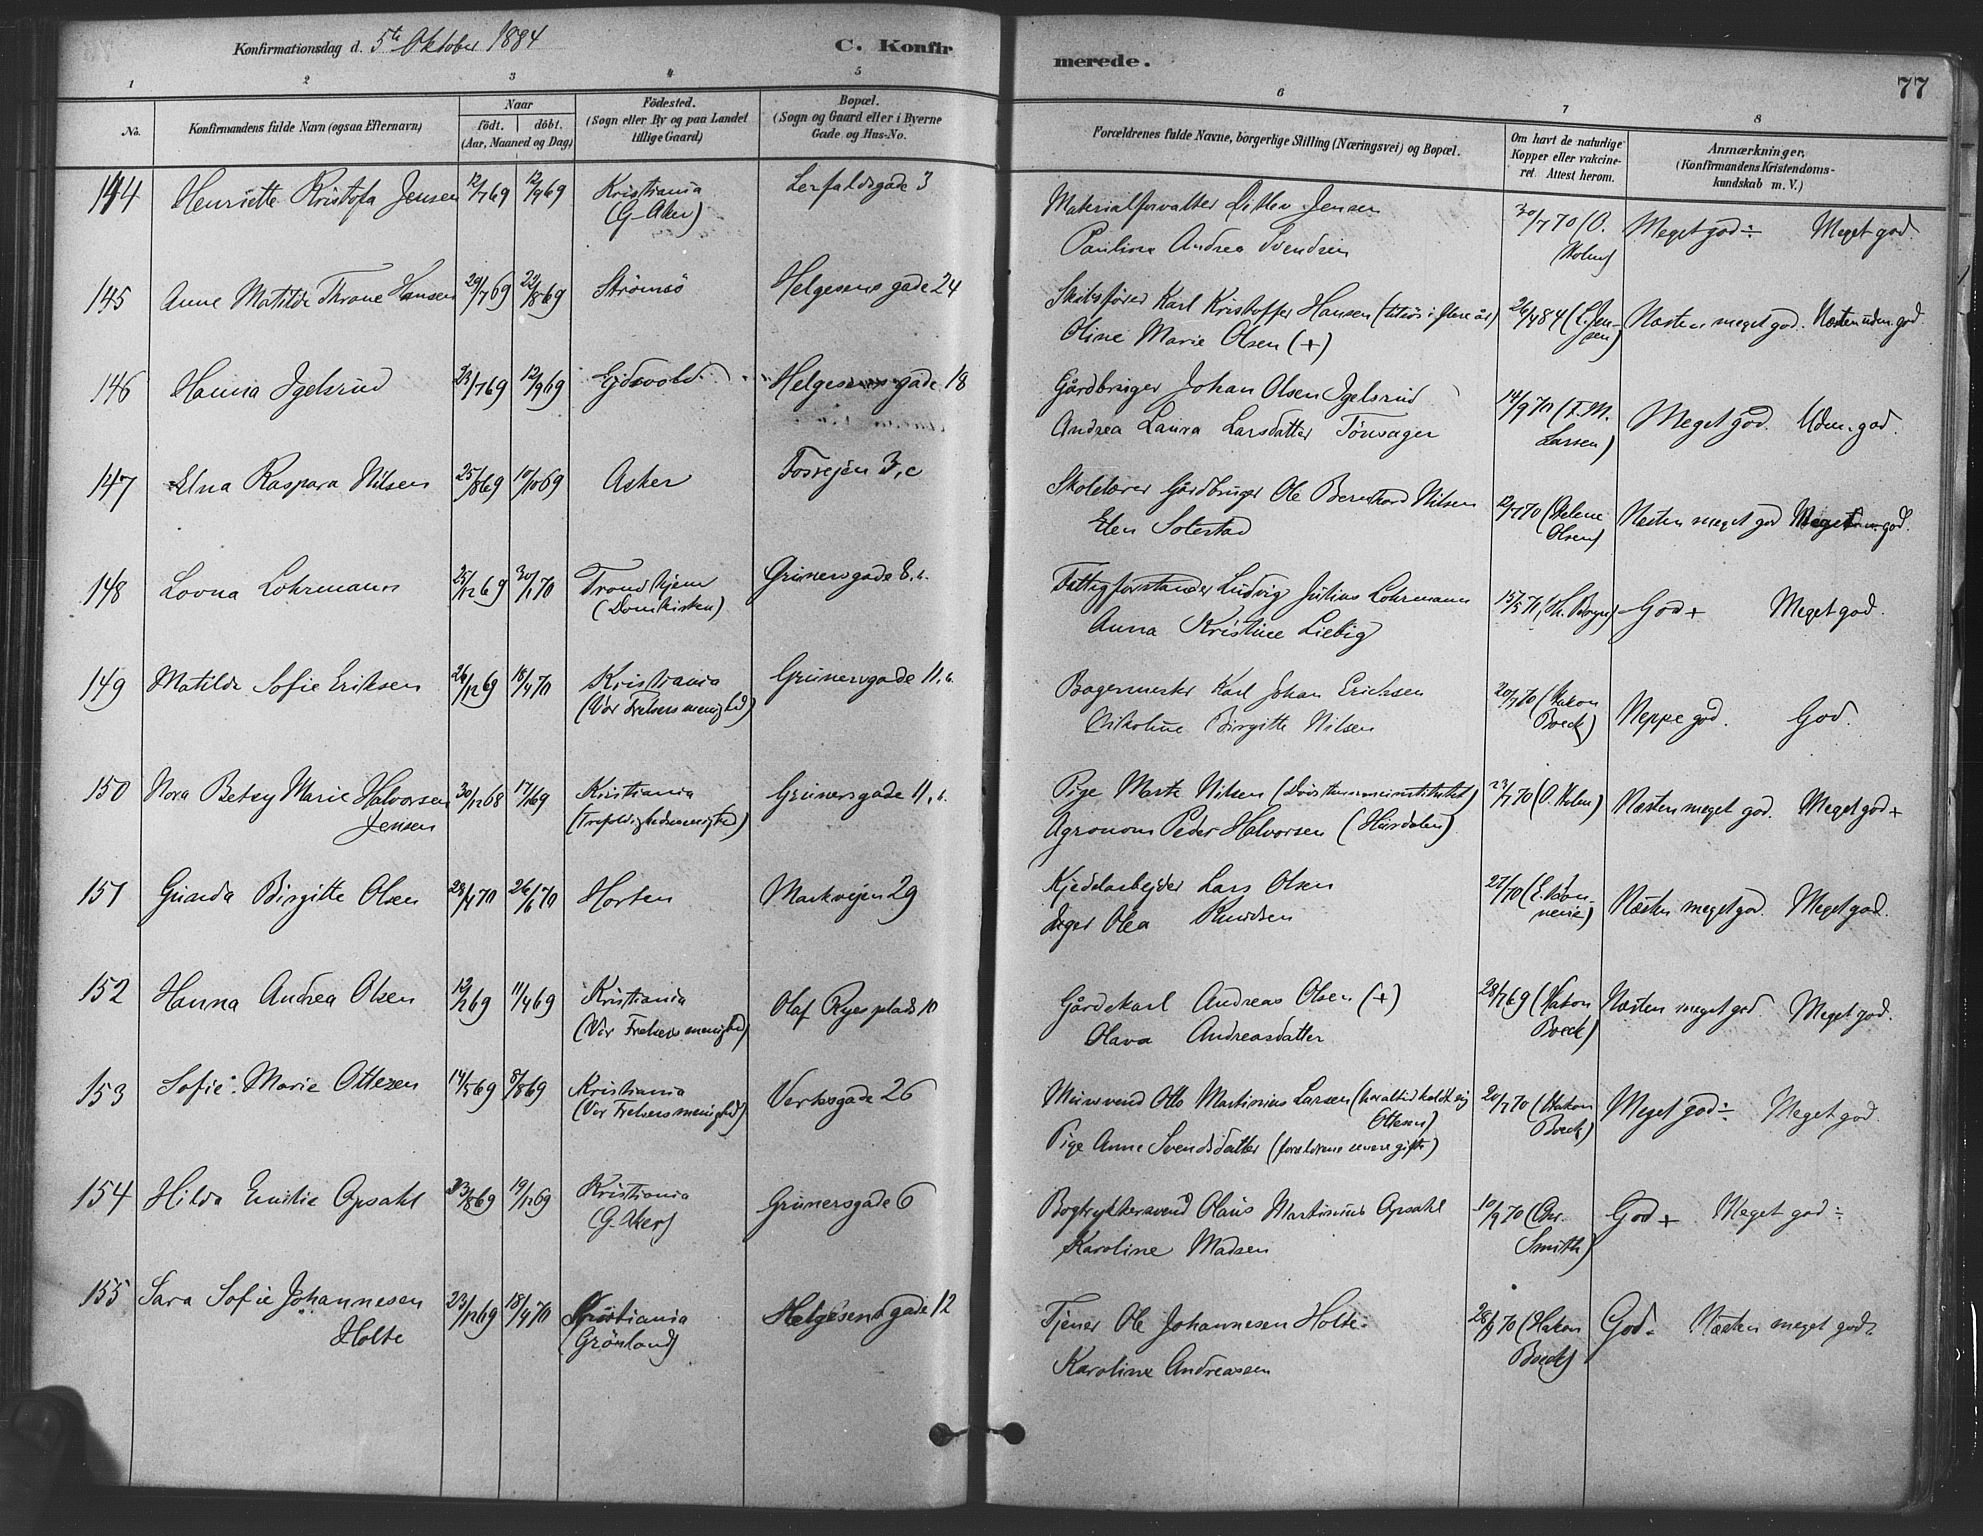 Konfirmationsdag d. 5te Oktober 1884
C. Konfirmerede.
77
1 2 3 4 5 6 7 8
No.
Konfirmandens fulde Navn (ogsaa Efternavn)
Naar
født. | døbt.
(Aar, Maaned og Dag)
Fødested.
(Sogn eller By og paa Landet
tillige Gaard)
Bopæl.
(Sogn og Gaard eller i Byerne
Gade og Hus-No.
Forældrenes fulde Navne, borgerlige Stilling (Næringsvei) og Bopæl.
Om havt de naturlige
Kopper eller vakcine-
ret. Attest herom.
Anmærkninger.
(Konfirmandens Kristendoms-
kundskab m. V.)
144 Henriette Kristofa Jensen 12/7 69 12/9 69 Kristiania (G. Aker) Lerfaldsgade 3
Materialforvalter Ditlev Jensen
Paulina Andrea Svendsen
30/7 70 (O. Holm) Meget god ÷ Meget god.
145 Anne Matilde Thrane Hansen 29/7 69 22/8 69 Strømsø Helgesens gade 24
Skibsfører Karl Kristoffer Hansen (tilsjøs i flere år)
Oline Marie Olsen (+)
26/4 84 (L. Jensen) Næsten meget god. Næsten udm. god.
146 Hanna Igelsrud 23/7 69 12/9 69 Ejdsvold Helgesens gade 18
Gårdbruger Johan Olsen Igelsrud
Andrea Laura Larsdatter Tønsager
14/9 70 (F. M. Larsen) Meget god. Udm. god.
147 Elna Kaspara Nilsen 25/8 69 10/10 69 Asker Fosvejen 3, c
Skolelærer Gårdbruger Ole Bernhard Nilsen
Elen Solestad
12/7 70 (Helene Olsen) Næsten meget god Meget god.
148 Lovna Lohrmann 25/12 69 30/1 70 Trondhjem (Domkirken) Grünersgade 8, b.
Fattigforstander Ludvig Julius Lohrmann
Anna Kristine Liebig
15/5 71 God + Meget god.
149 Matilde Sofie Eriksen 26/12 69 18/4 70 Kristiania (Vor Frelsers menighed) Grünersgade 11, b.
Bagermester Karl Johan Ericksen
Nikoline Birgitte Nilsen
20/7 70 (Hakon Boeck) Neppe god. God.
150 Nora Betsy Marie Halvorsen Jensen 30/12 68 17/1 69 Kristiania (Trefoldighedsmenighed) Grünersgade 11, b.
Pige Marte Nilsen (Døvstummeinstitutet)
Agronom Peder Halvorsen (Hurdalen)
23/7 70 (O. Holm) Næsten meget god. Meget god +
151 Gunda Birgitte Olsen 28/4 70 26/6 70 Horten Markvejen 29
Kjedelarbejder Lars Olsen
Inger Olea Knudsen
Næsten meget god. Meget god.
152 Hanna Andrea Olsen 12/2 69 11/4 69 Kristiania (Vor Frelsers menighed) Olaf Ryes plads 10
Gårdskarl Andreas Olsen (+)
Olava Andreasdatter
28/7 69 (Hakon Boeck) Næsten meget god Meget god.
153 Sofie Marie Ottesen 14/5 69 8/8 69 Kristiania (Vor Frelsers menighed) Verksgade 26
Mursvend Otto Martinius Larsen (har altid kaldt sig Ottesen)
Pige Anne Svendsdatter (forældrene uvære gifte)
20/7 70 (Hakon Boeck) Meget god ÷ Meget god.
154 Hilda Emilie Opsahl 23/8 69 19/12 69 Kristiania (G. Aker) Grünersgade 6
Bogtrykkersvend Olaus Martinius Opsahl
Karoline Madsen
10/9 70 (Chr. Smith) God + Meget god ÷
155 Sara Sofie Johannesen Holte 23/12 69 18/4 70 Kristiania (Grønland) Helgesens gade 12
Tjener Ole Johannesen Holte.
Karoline Andreassen
28/9 70 (Hakon Boeck) God. Næsten meget god.